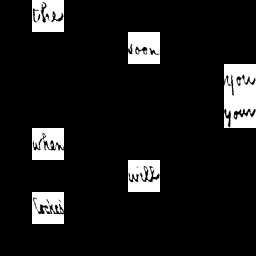 the
soon
you
your
when
will